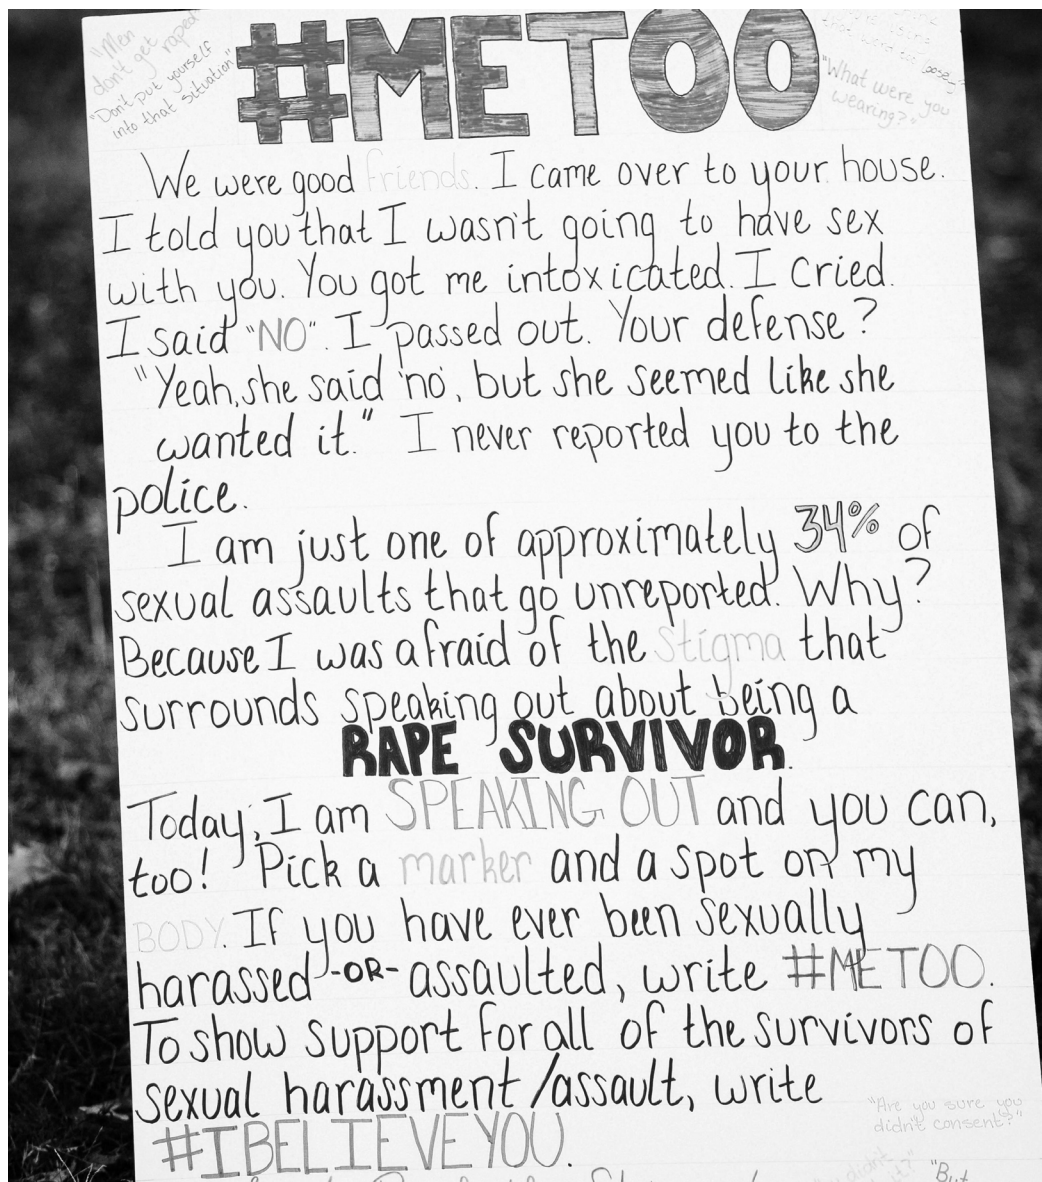 "Men
don't get raped
"Don't put yourself
into that situation"
#METOO
"What were you
wearing?"
We were good friends. I came over to your house.
I told you that I wasn't going to have sex
with you. You got me intoxicated. I cried.
I said "NO". I passed out. Your defense?
"Yeah, she said 'no', but she seemed like she
wanted it." I never reported you to the
police.
I am just one of approximately 34% of
sexual assaults that go unreported. Why?
Because I was afraid of the stigma that
surrounds speaking out about being a
RAPE SURVIVOR.
Today, I am SPEAKING OUT and you can,
too! Pick a marker and a spot on my
BODY. If you have ever been sexually
harassed -OR- assaulted, write #METOO.
To show support for all of the survivors of
sexual harassment/assault, write
#IBELIEVEYOU.
"Are you sure you
didn't consent?"
"But